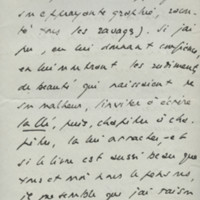 son effrayante
té tous les ravages). Si j'ai
pu, en lui donnant confiance,
en lui montrant les rudiments
de beauté qui naissaient de
son malheur, l'inviter à écrire
puis, chapitre à cha-
pitre, la lui arracher, et
si le livre est aussi beau que
vous et moi nous le pensons,
il me semble que j'ai raison